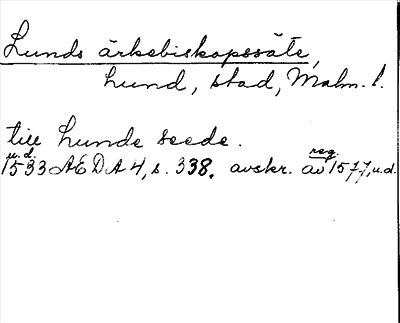 Lunds ärkebiskopssäte,
Lund, stad, Malm. l.
till Lunde seede.
u.d. reg.
1533 AEDA 4, s. 338. avskr. av 1577, u.d.